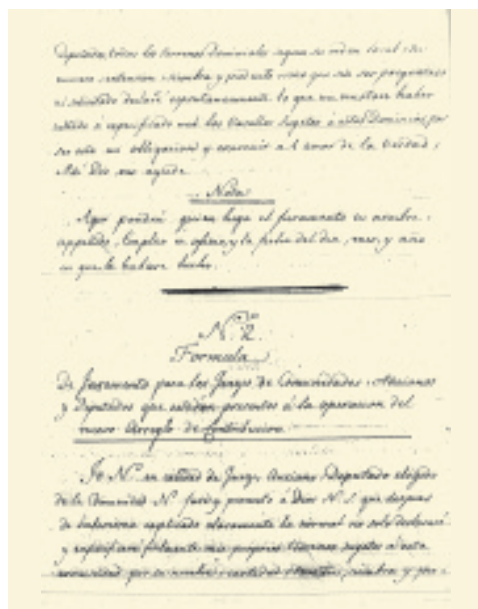 Diputados, todos los terrenos Dominiales segun su orden local, su
numero, extension, siembra y producto sino que sin ser preguntado
ni solicitado declararé espontaneamente lo que me constare haber
los Vasallos sugetos a estos Dominios, por
ser esto mi obligacion y convenir al amor de la Verdad,
Asi Dios me ayude.
Nota
Aqui pondrá quien haga el juramento su nombre,
appellido, Empleo u oficio, y la fecha del dia, mes, y año
en que le hubiere hecho.
N.º 2.
Formula
De Juramento para los Jueyes de Comunidades, Ancianos
y Diputados que estarán presentes á la operacion del
nuevo Arreglo de Contribucion
Yo N. en calidad de Juez, Anciano, Diputado elegido
de la Comunidad N. juro y prometo á Dios N. S. que despues
de haberseme explicado claramente la normal no solo declararé
y especificaré fielmente mis propios Terrenos sugetos á esta
comunidad por su nombre, cantidad, siembra y pro-